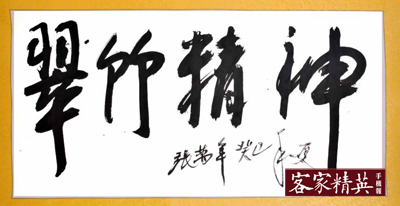 翠竹精神
張萬年 癸巳 夏
客家精英 手機報